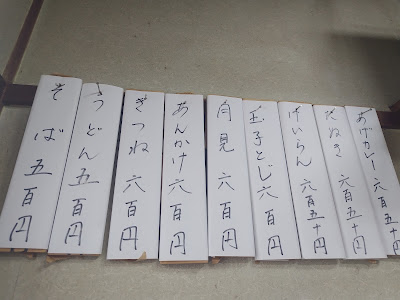 あげカレー六百円
たぬき 六百五十円
けいらん 六百五十円
玉子とじ 六百円
月見 六百円
あんかけ 六百円
きつね 六百円
うどん 五百円
そば 五百円